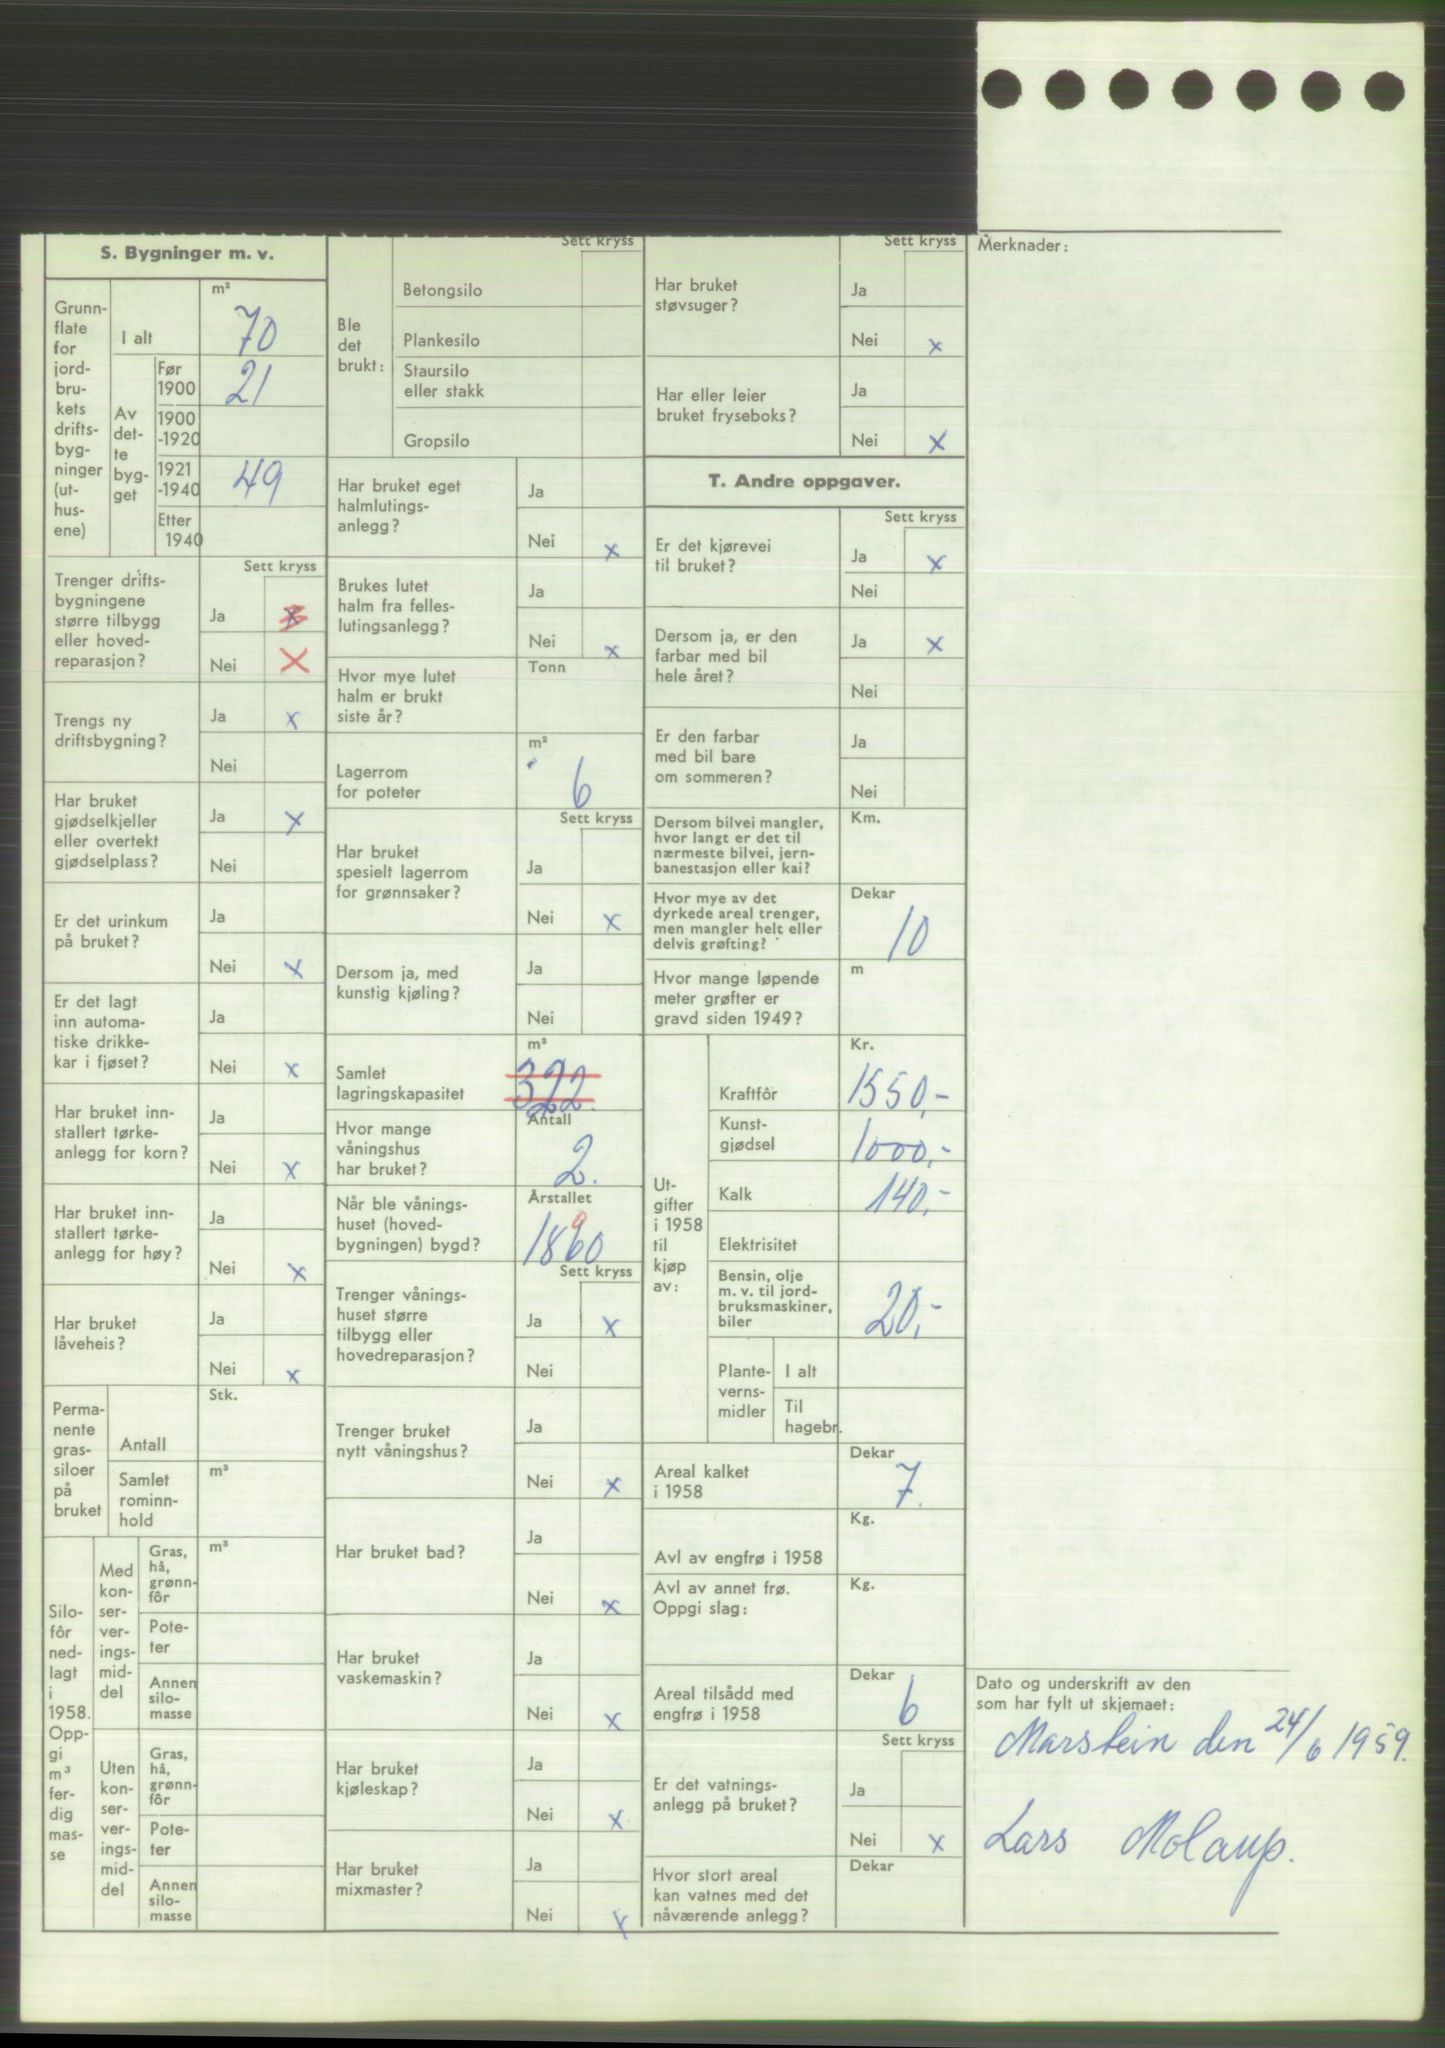 S. Bygninger m. v.
Grunn-
flate
for
jord-
bru-
kets
drifts-
byg-
ninger
(ut-
hus-
ene)
I alt
m²
70
Av
det-
te
byg-
get
Før
1900
21
1900
-1920
1921
-1940
49
Etter
1940
Sett kryss
Trenger drifts-
bygningene
større tilbygg
eller hoved-
reparasjon?
Ja x
Nei x
Trengs ny
driftsbygning?
Ja x
Nei
Har bruket
gjødselkjeller
eller overtekt
gjødselplass?
Ja x
Nei
Er det urinkum
på bruket?
Ja
Nei x
Er det lagt
inn automa-
tiske drikke-
kar i fjøset?
Ja
Nei x
Har bruket inn-
stallert tørke-
anlegg for korn?
Ja
Nei x
Har bruket inn-
stallert tørke-
anlegg for høy?
Ja
Nei x
Har bruket
låveheis?
Ja
Nei x
Perma-
nente
gras-
siloer
på
bruket
Stk.
Antall
Samlet
rominn-
hold
m³
Silo-
fôr
ned-
lagt
i
1958.
Opp-
gi
m³
fer-
dig
mas-
se
Med
kon-
ser-
ver-
ings-
mid-
del
Gras,
hå,
grønn-
fôr
m³
Pote-
ter
Annen
silo-
masse
Uten
kon-
ser-
ver-
ings-
mid-
del
Gras,
hå,
grønn-
fôr
Pote-
ter
Annen
silo-
masse
Sett kryss
Ble
det
brukt:
Betongsilo
Plankesilo
Staursilo
eller stakk
Gropsilo
Har bruket eget
halmlutings-
anlegg?
Ja
Nei x
Brukes lutet
halm fra felles-
lutingsanlegg?
Ja
Nei x
Hvor mye lutet
halm er brukt
siste år?
Tonn
Lagerrom
for poteter
m²
6
Sett kryss
Har bruket
spesielt lagerrom
for grønnsaker?
Ja
Nei x
Dersom ja, med
kunstig kjøling?
Ja
Nei
Samlet
lagringskapasitet
m³
322.
Hvor mange
våningshus
har bruket?
Antall
2.
Når ble vånings-
huset (hoved-
bygningen) bygd?
Årstallet
1860
Sett kryss
Trenger vånings-
huset større
tilbygg eller
hovedreparasjon?
Ja x
Nei
Trenger bruket
nytt våningshus?
Ja
Nei x
Har bruket bad?
Ja
Nei x
Har bruket
vaskemaskin?
Ja
Nei x
Har bruket
kjøleskap?
Ja
Nei x
Har bruket
mixmaster?
Ja
Nei x
Sett kryss
Har bruket
støvsuger?
Ja
Nei x
Har eller leier
bruket fryseboks?
Ja
Nei x
T. Andre oppgaver.
Sett kryss
Er det kjørevei
til bruket?
Ja x
Nei
Dersom ja, er den
farbar med bil
hele året?
Ja x
Nei
Er den farbar
med bil bare
om sommeren?
Ja
Nei
Dersom bilvei mangler,
hvor langt er det til
nærmeste bilvei, jern-
banestasjon eller kai?
Km.
Hvor mye av det
dyrkede areal trenger,
men mangler helt eller
delvis grøfting?
Dekar
10
Hvor mange løpende
meter grøfter er
gravd siden 1949?
m
Ut-
gifter
i 1958
til
kjøp
av:
Kr.
Kraftfôr
1550,-
Kunst-
gjødsel
1000,-
Kalk
140,-
Elektrisitet
Bensin, olje
m. v. til jord-
bruksmaskiner,
biler
20,-
Plante-
verns-
midler
I alt
Til
hagebr.
Areal kalket
i 1958
Dekar
7.
Avl av engfrø i 1958
Kg.
Avl av annet frø.
Oppgi slag:
Kg.
Areal tilsådd med
engfrø i 1958
Dekar
6
Sett kryss
Er det vatnings-
anlegg på bruket?
Ja
Nei x
Hvor stort areal
kan vatnes med det
nåværende anlegg?
Dekar
Merknader:
Dato og underskrift av den
som har fylt ut skjemaet:
Marstein den 24/6 1959.
Lars